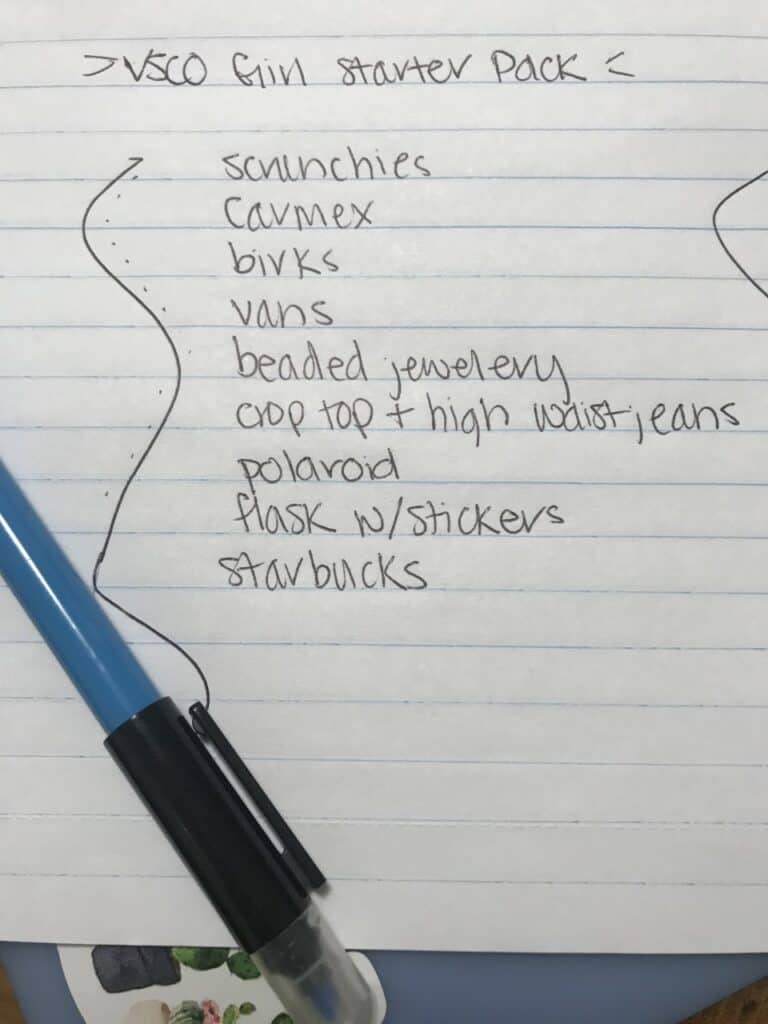 >VSCO Girl Starter Pack<
scrunchies
Carmex
birks
vans
beaded jewelery
crop top + high waist jeans
polaroid
flask w/stickers
starbucks